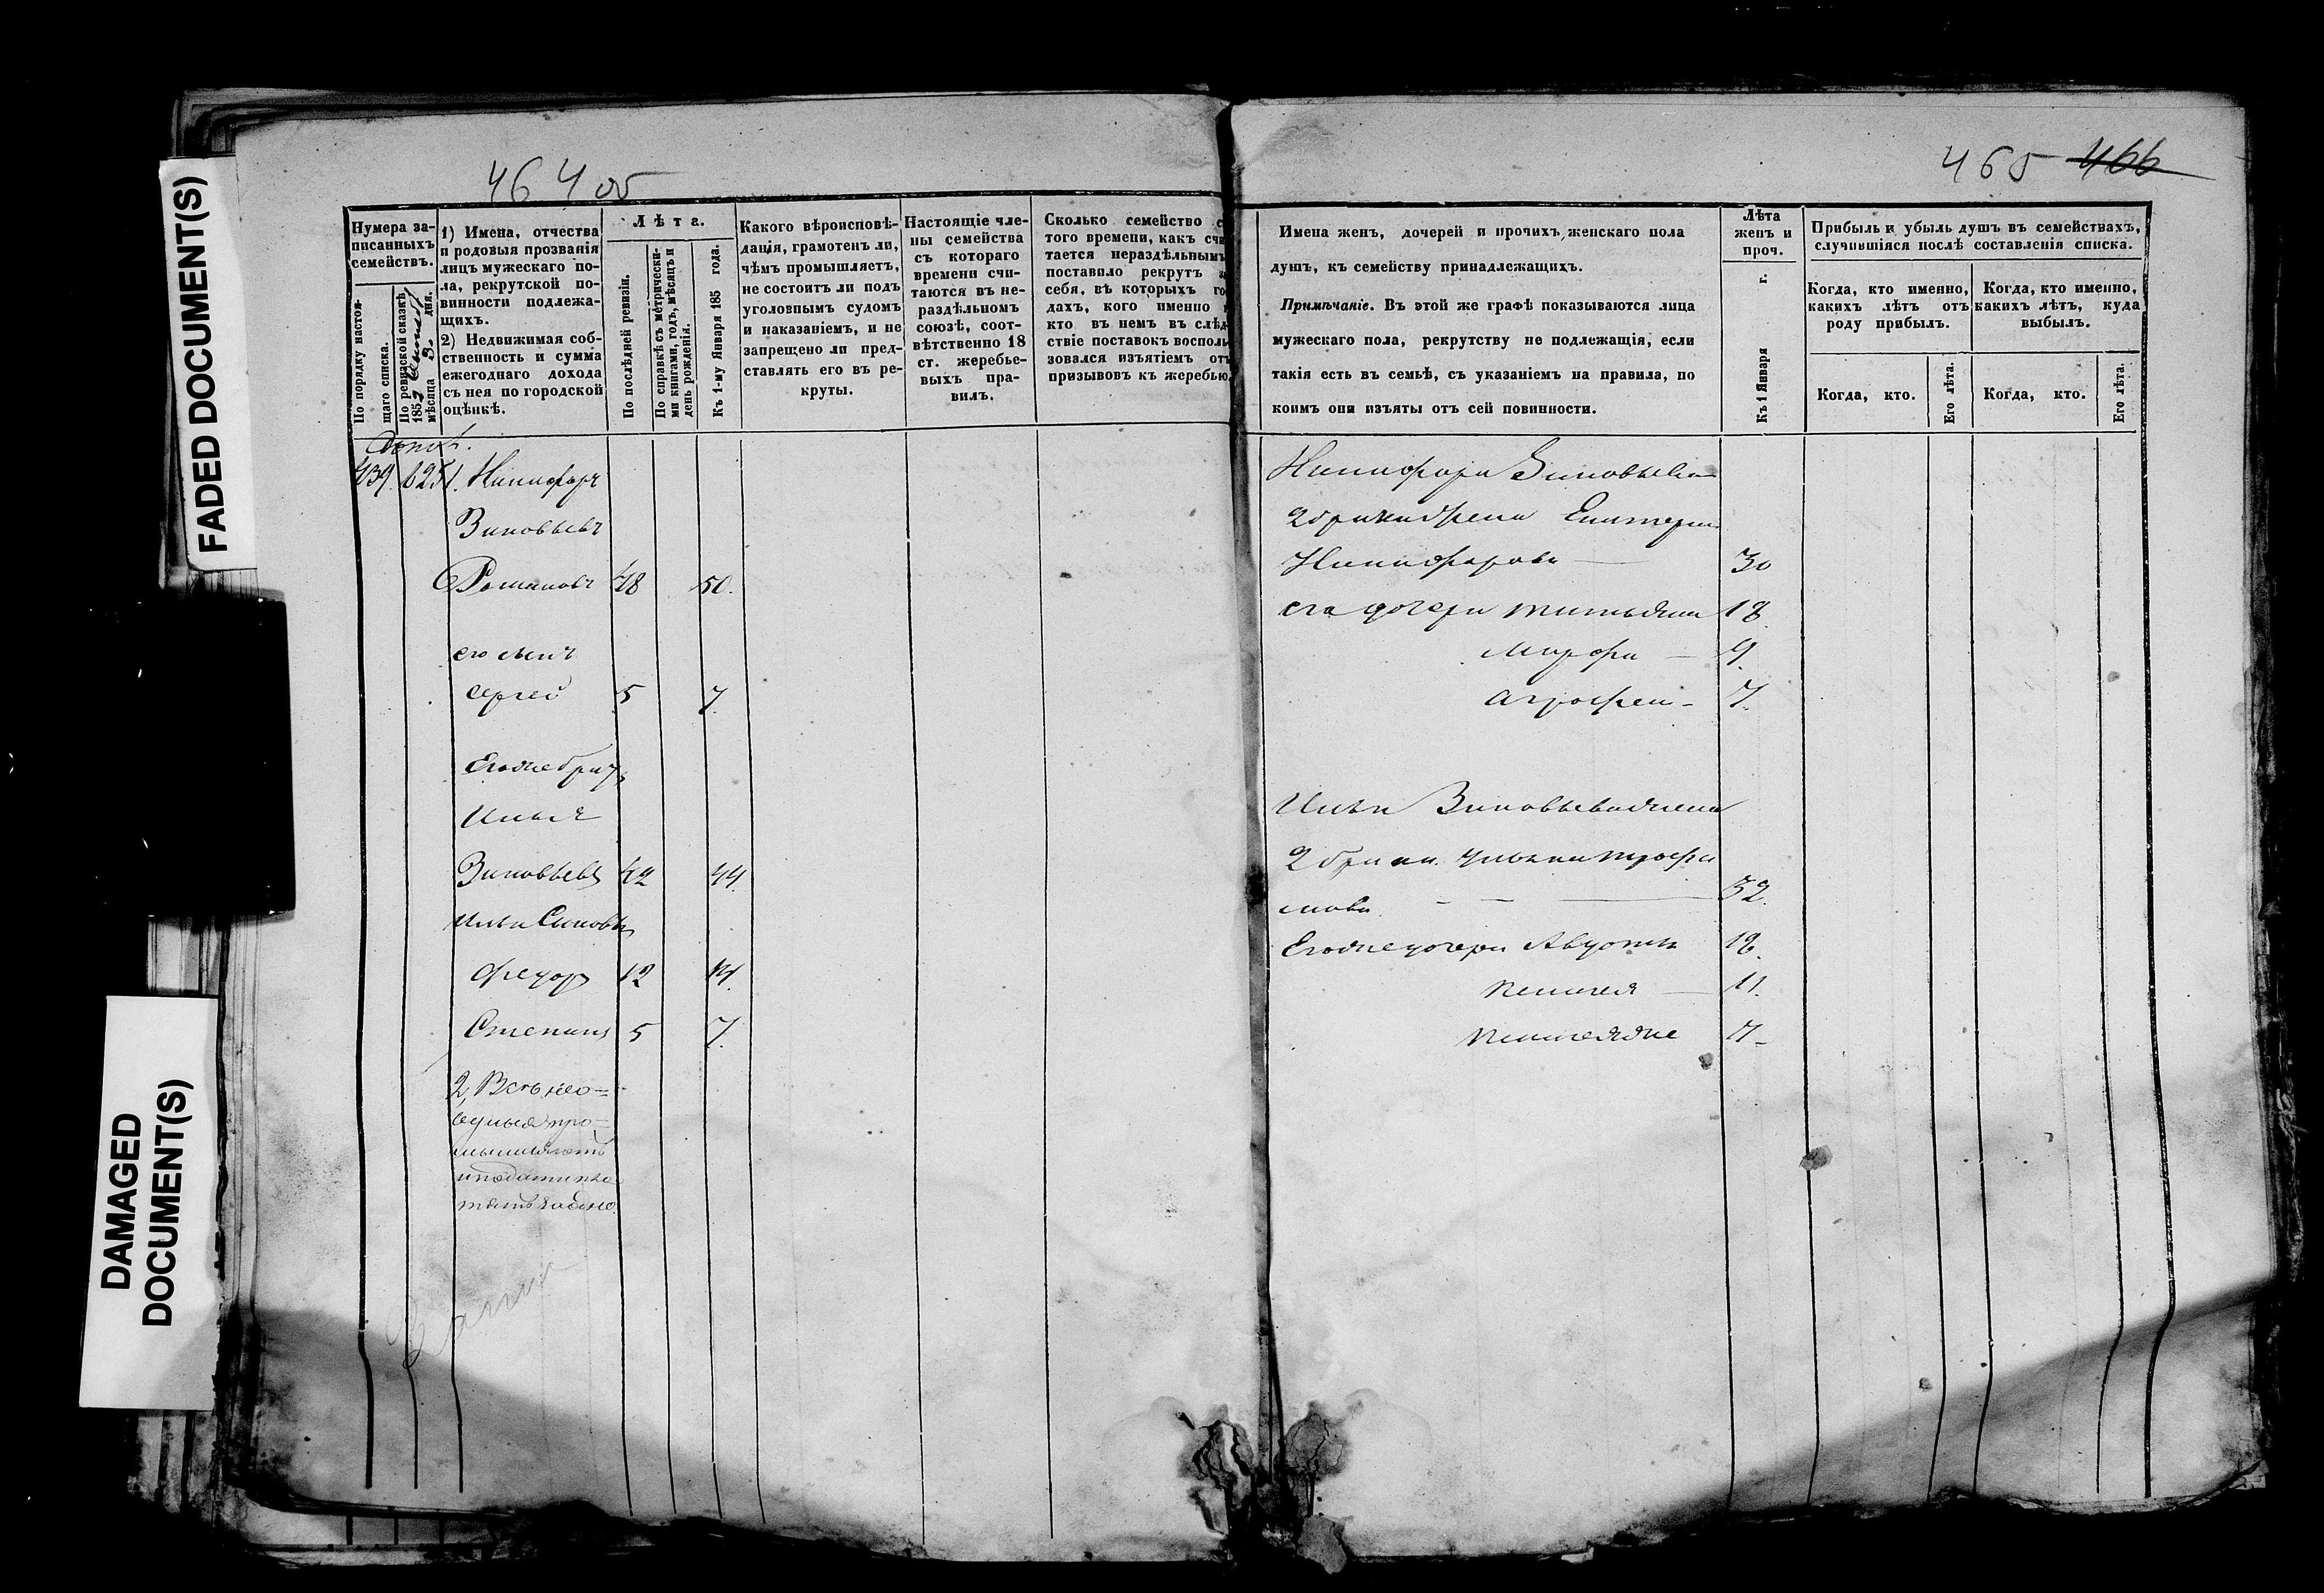 FADED DOCUMENT(S)
DAMAGED
DOCUMENT(S)
465 466
Нумера за-
писанныхъ
семействъ.
По порядку настоя-
щаго списка.
По ревизской сказкѣ
185
мѣсяца 3. дня.
1) Имена, отчества
и родовыя прозванія
лицъ мужескаго по-
ла, рекрутской по-
винности подлежа-
щихъ.
2) Недвижимая соб-
ственность и сумма
ежегоднаго дохода
съ нея по городской
оцѣнкѣ.
Лѣта.
По послѣдней ревизіи.
По справкѣ съ метрически-
ми книгами, годъ, мѣсяцъ и
день рожденія.
Къ 1-му Января 185 года.
Какого вѣроисповѣ-
данія, грамотенъ ли,
чѣмъ промышляетъ,
не состоитъ ли подъ
уголовнымъ судомъ
и наказаніемъ, и не
запрещено ли пред-
ставлять его въ ре-
круты.
Настоящіе чле-
ны семейства
съ котораго
времени счи-
таются въ не-
раздѣльномъ
союзѣ, соот-
вѣтственно 18
ст. жеребье-
выхъ пра-
вилъ.
Сколько семейство с
того времени, какъ счи
тается нераздѣльнымъ
поставило рекрутъ
себя, въ которыхъ го
дахъ, кого именно
кто въ немъ въ слѣд
ствіе поставокъ восполь
зовался изъятіемъ отъ
призывовъ къ жеребью
Имена женъ, дочерей и прочихъ, женскаго пола
душъ, къ семейству принадлежащихъ.
Примѣчаніе. Въ этой же графѣ показываются лица
мужескаго пола, рекрутству не подлежащія, если
такія есть въ семьѣ, съ указаніемъ на правила, по
коимъ они изъяты отъ сей повинности.
Лѣта
женъ и
проч.
Къ 1 Января г.
Прибыль и убыль душъ въ семействахъ,
случившіяся послѣ составленія списка.
Когда, кто именно,
какихъ лѣтъ отъ
роду прибылъ.
Когда, кто именно,
какихъ лѣтъ, куда
выбылъ.
Когда, кто.
Его лѣта.
Когда, кто.
Его лѣта.
Никифоръ
Зиновьевъ
Романовъ 48 50.
его сынъ
Сергей 5 7.
Егоже братъ
Илья
Зиновьевъ 42 44.
Ильи Сыновья
Федоръ 12 14.
Степанъ 5 7.
Никифора Зиновьева
2 бракажена Екатерина
Никифорова 30
его дочери Татьяна 18.
Марфа 9.
Аграфена 7.
Ильи Зиновьеважена
2 брака Ульяна Трофи
мова 32.
Егоже дочери Авдотья 18.
Пелагея 11.
Пелагеяже 7